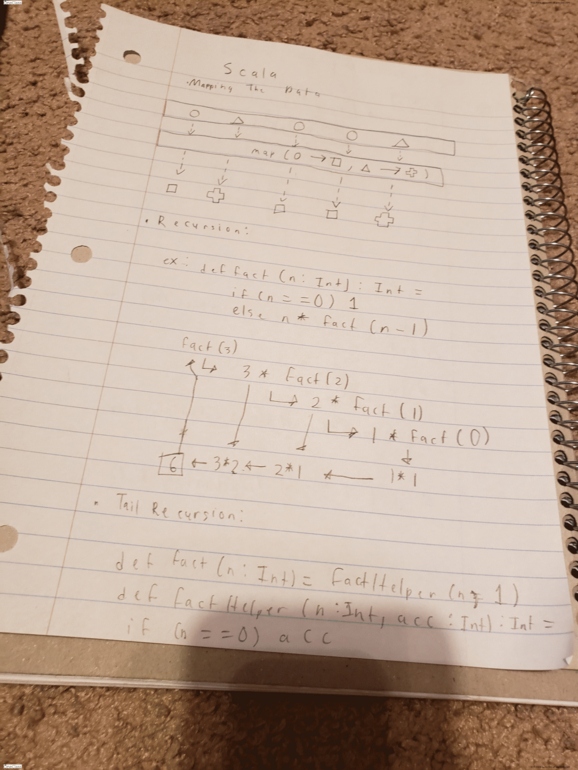 Scala
Mapping The Data
map (O → □, △ → ✚)
• Recursion:
ex: def fact (n: Int): Int =
if (n == 0) 1
else n * fact (n-1)
fact(3)
↳ 3 * fact(2)
↳ 2 * fact (1)
↳ 1 * fact (0)
6 ← 3*2 ← 2*1 ← 1*1
• Tail Recursion:
def fact (n: Int) = factHelper (n, 1)
def factHelper (n: Int, acc: Int): Int =
if (n == 0) acc